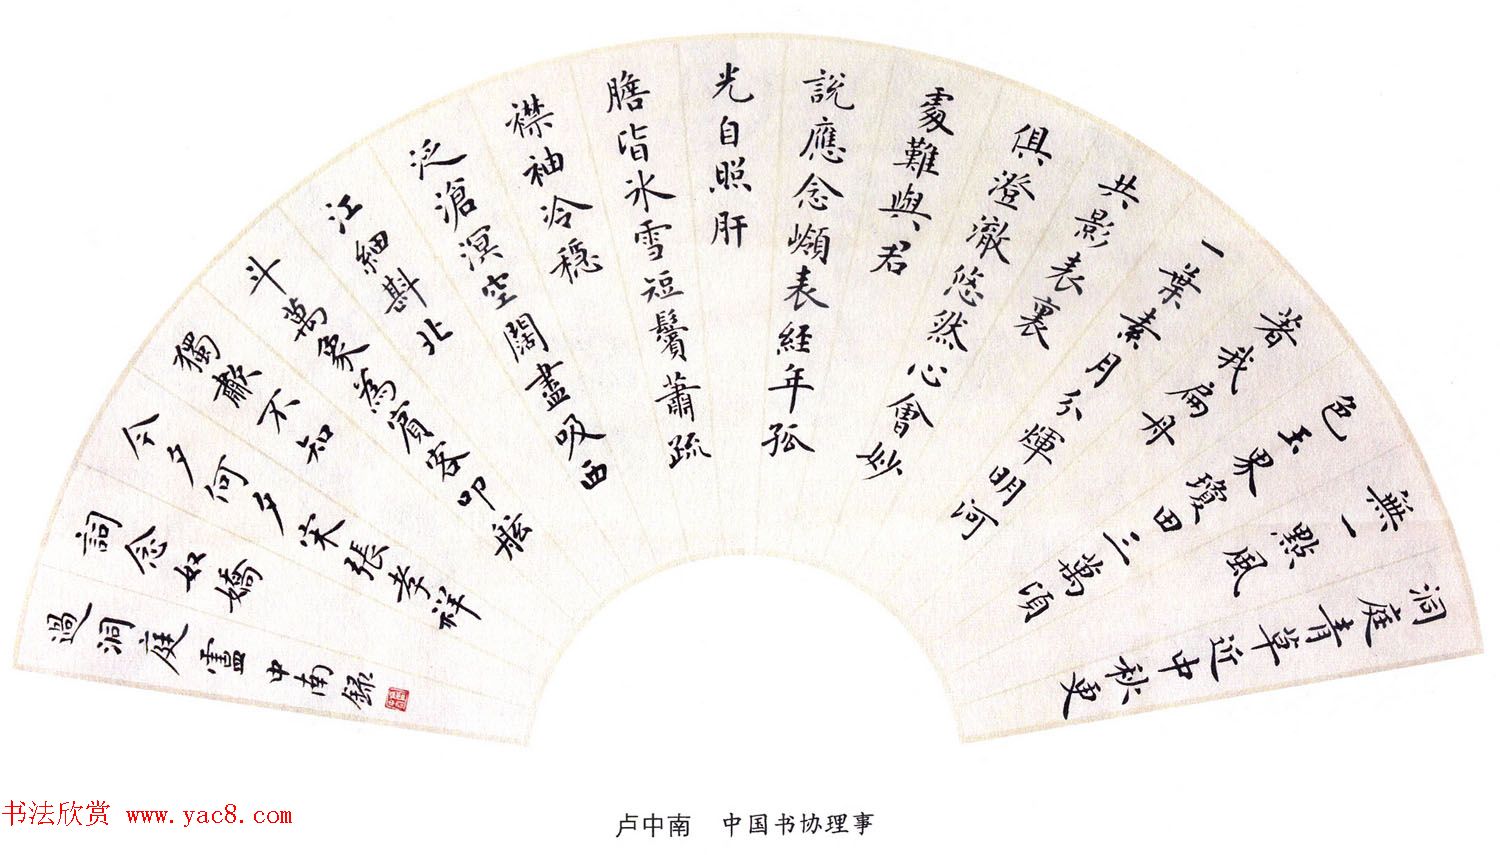 洞庭青草近中秋更
無一點風
色玉界瓊田三萬頃
著我扁舟
一葉素月分煇明河
共影表裏
俱澄澈悠然心會妙
處難與君
說應念嶺表經年孤
光自照肝
膽皆氷雪短鬢蕭疏
襟袖冷穩
泛滄溟空闊盡吸西
江細斟北
斗萬象為賓客叩舷
獨歗不知
今夕何夕宋張孝祥
詞念奴嬌
過洞庭盧中南録
书法欣赏 www.yac8.com
卢中南 中国书协理事